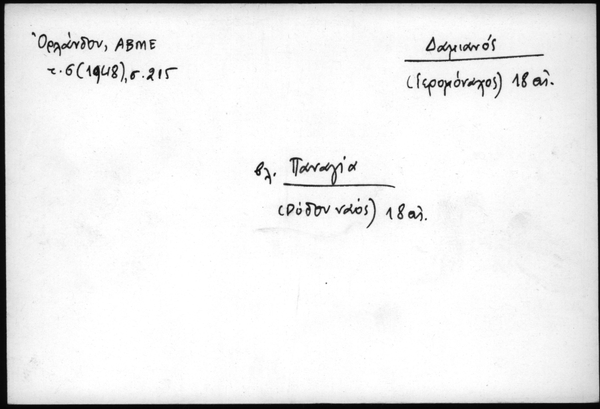 Ὀρλάνδου, ΑΒΜΕ
τ. 6 (1948), σ. 215
Δαμιανός
(Ιερομόναχος) 18 αἰ.
βλ. Παναγία
(Ρόδου ναός) 18 αἰ.